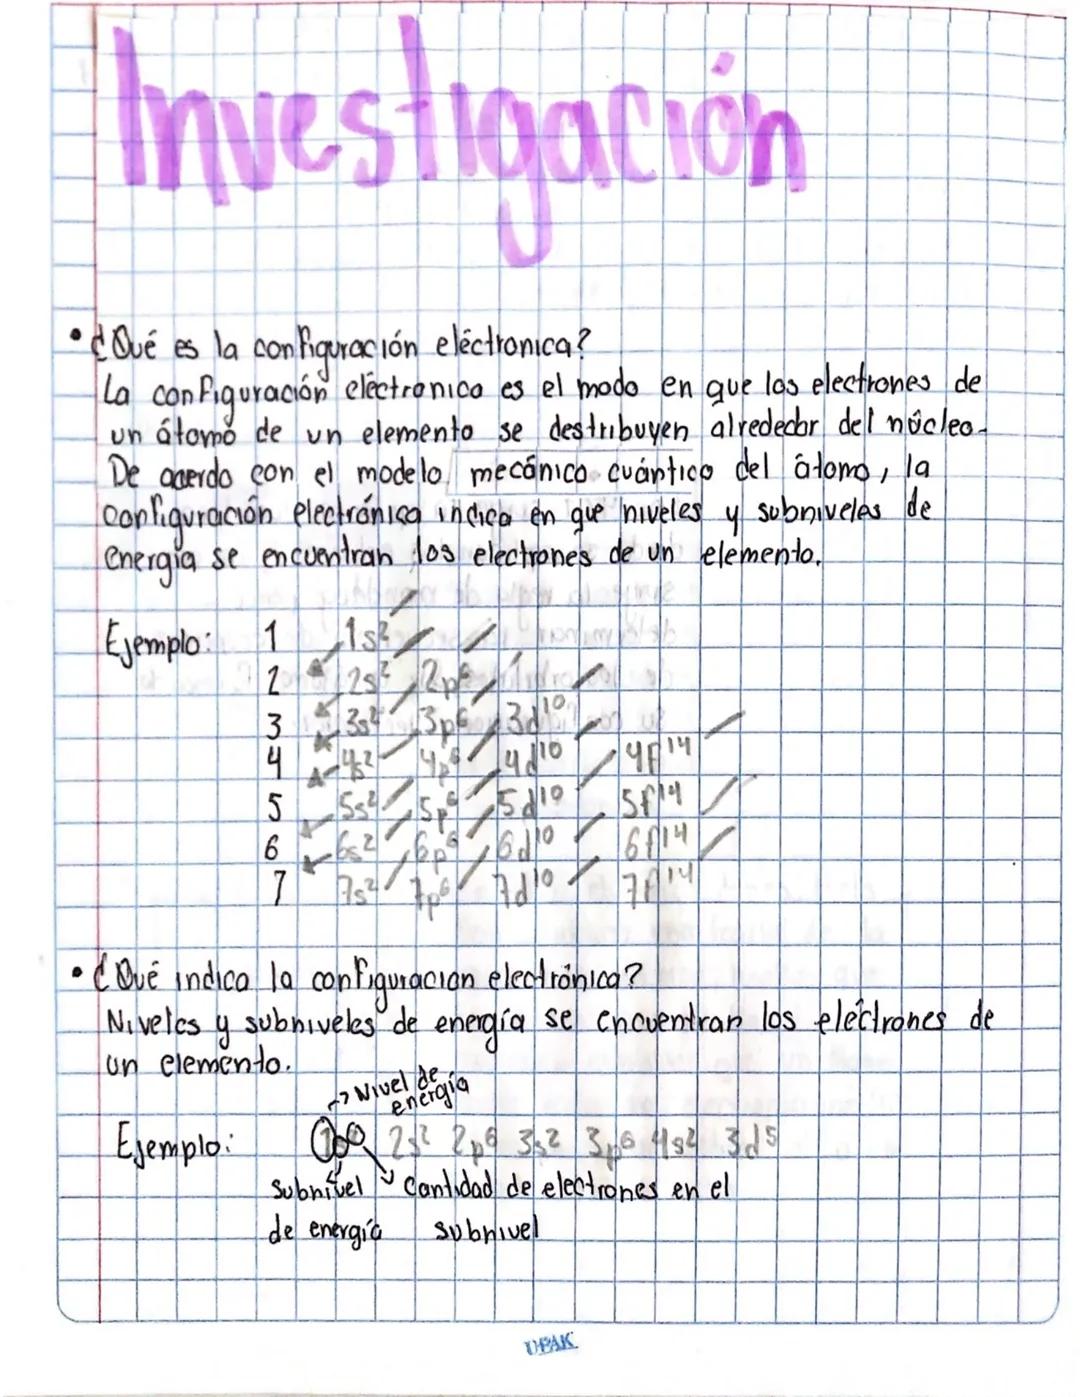 Investigación
• ¿Qué es la configuración eléctronica?
La configuración eléctronica es el modo en que los electrones de
un átomo de un elemento se destribuyen alrededor del núcleo.
De acerdo con el modelo mecánico cuántico del átomo, la
configuración electrónica indica en que niveles y subniveles de
energía se encuentran los electrones de un elemento.
Ejemplo: 1 1s²
2 2s² 2p⁶
3 3s² 3p⁶ 3d¹⁰
4 4s² 4p⁶ 4d¹⁰ 4f¹⁴
5 5s² 5p⁶ 5d¹⁰ 5f¹⁴
6 6s² 6p⁶ 6d¹⁰ 6f¹⁴
7 7s² 7p⁶ 7d¹⁰ 7f¹⁴
• ¿Qué indica la configuracion electrónica?
Niveles y subniveles de energía se encuentran los eléctrones de
un elemento.
→ Nivel de
energía
Ejemplo: 2s² 2p⁶ 3s² 3p⁶ 4s² 3d⁵
subnivel Cantidad de electrones en el
de energía subnivel